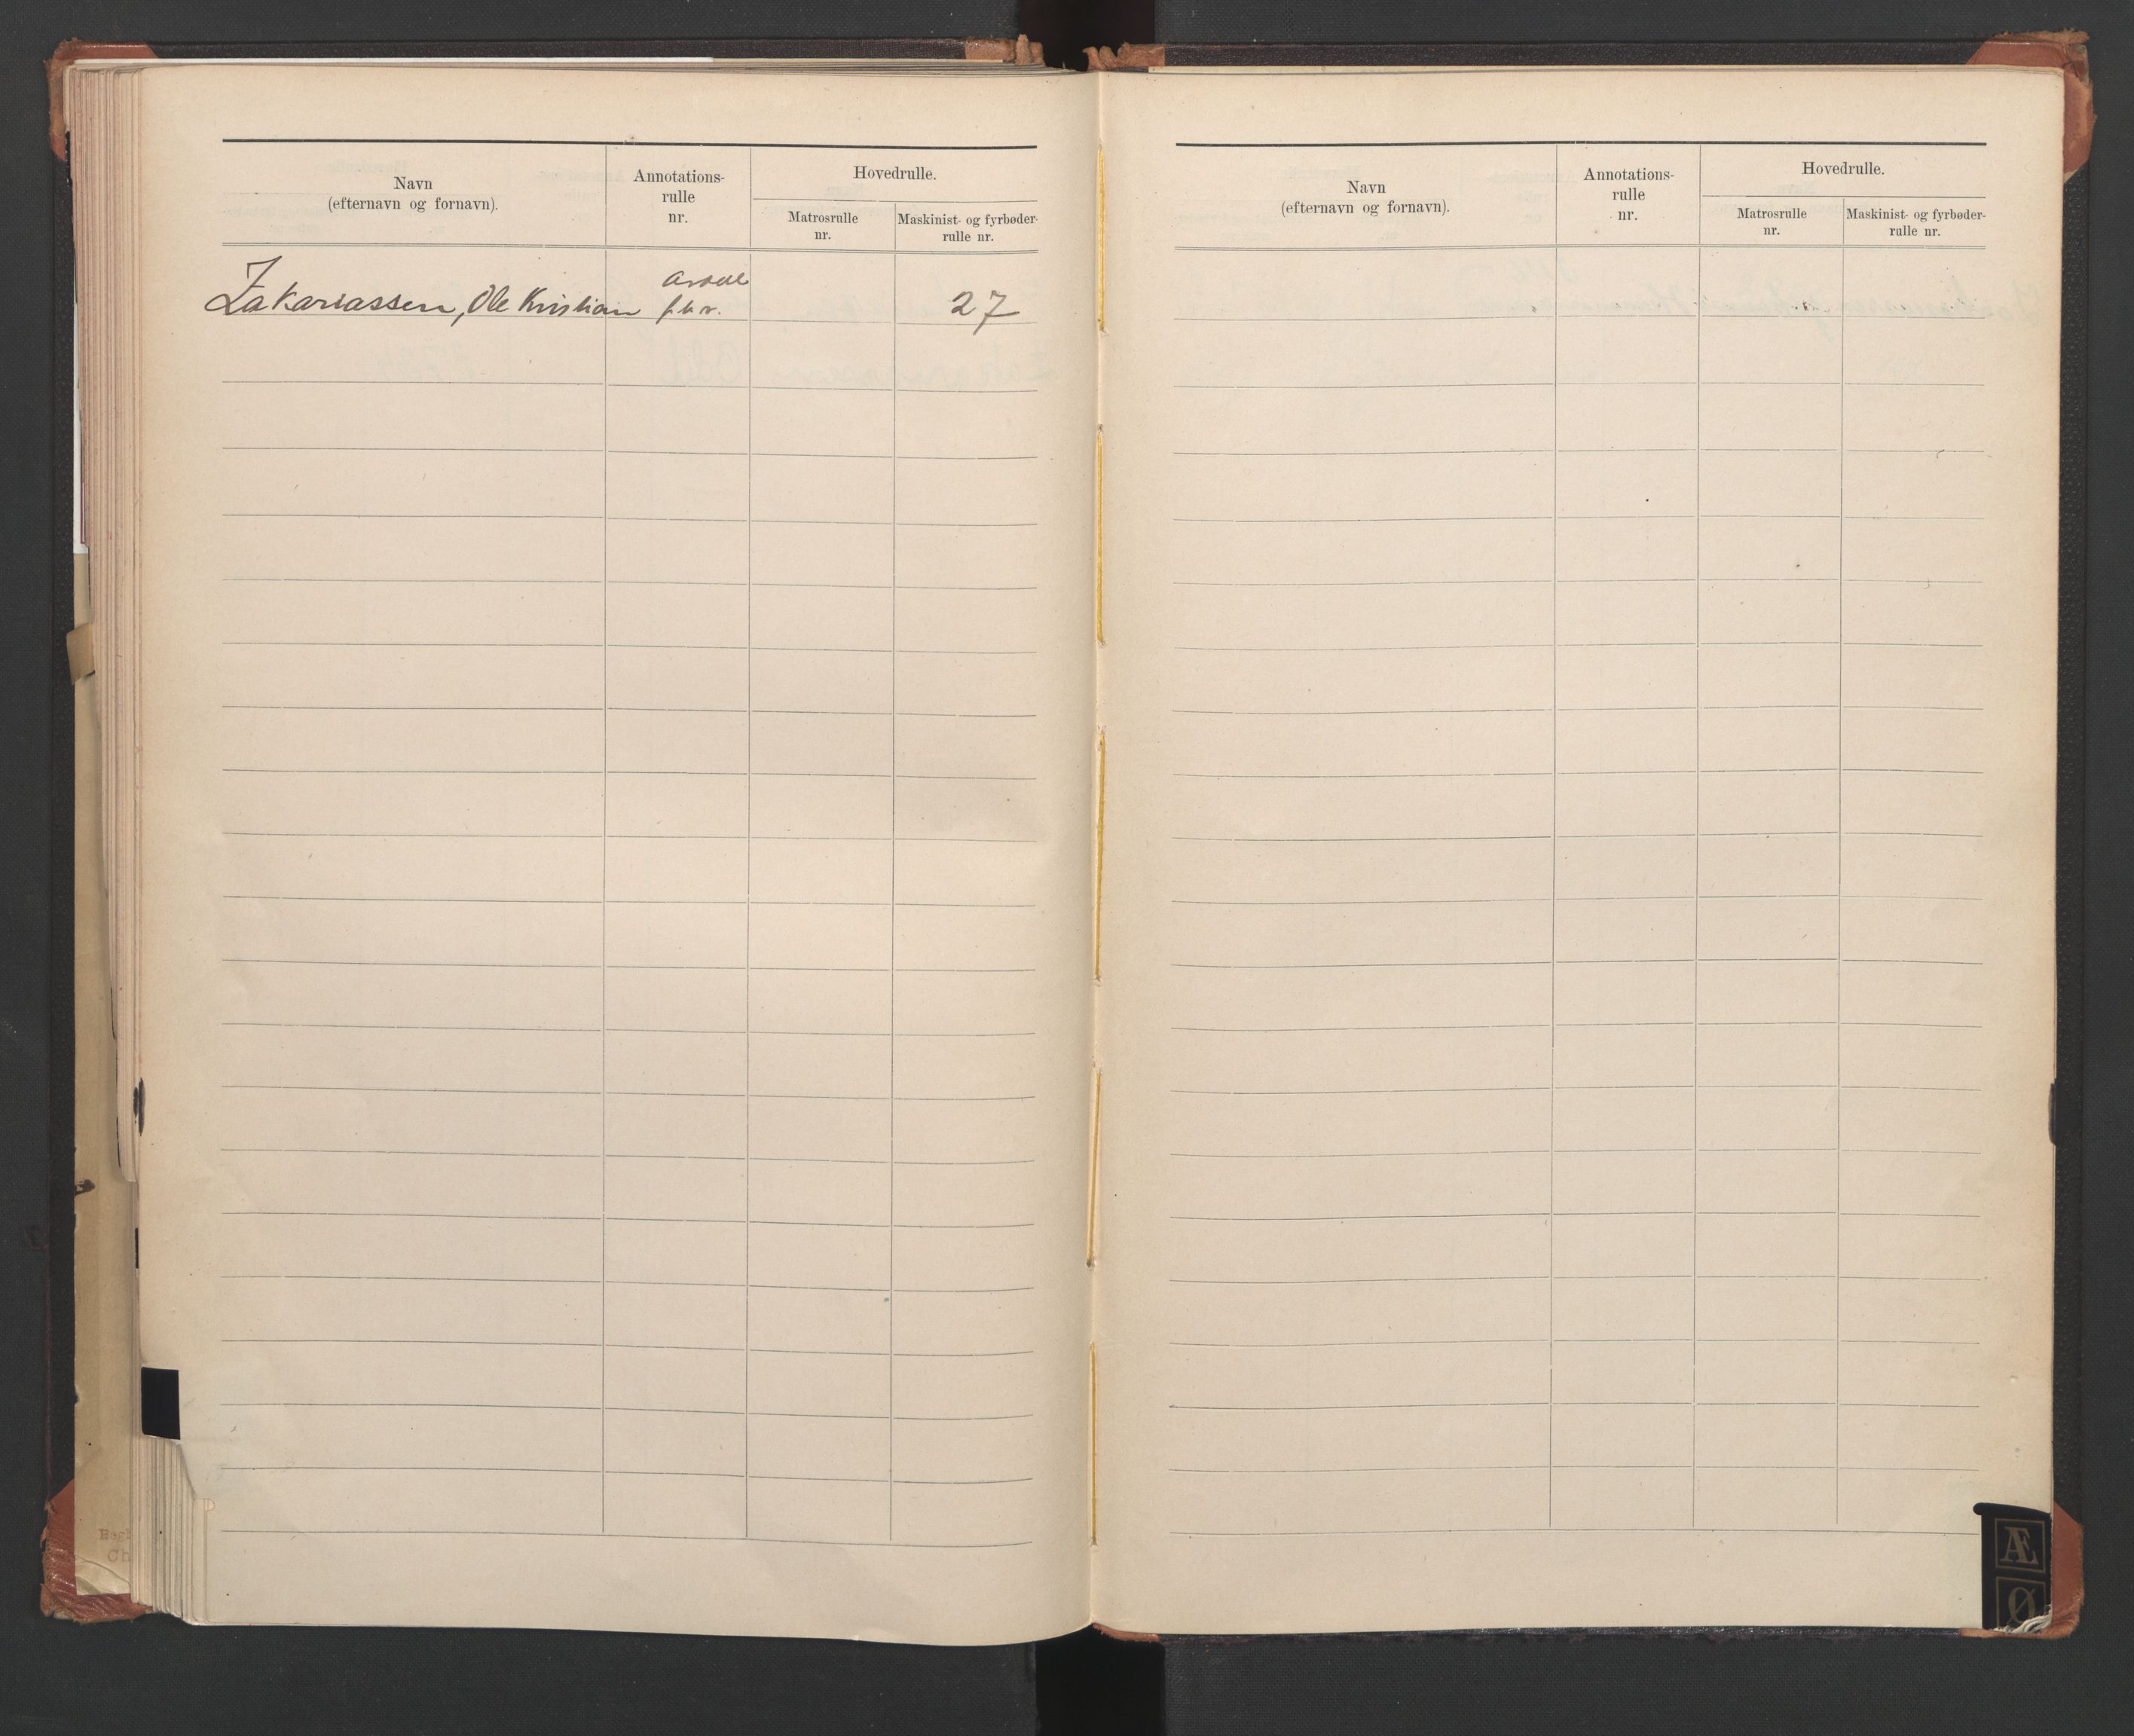 Navn
(efternavn og fornavn).
Annotations-
rulle
nr.
Hovedrulle.
Matrosrulle
nr.
Maskinist- og fyrbøder-
rulle nr.
Zakariassen, Ole Kristian
27
Navn
(efternavn og fornavn).
Annotations-
rulle
nr.
Hovedrulle.
Matrosrulle
nr.
Maskinist- og fyrbøder-
rulle nr.
Æ
Ø